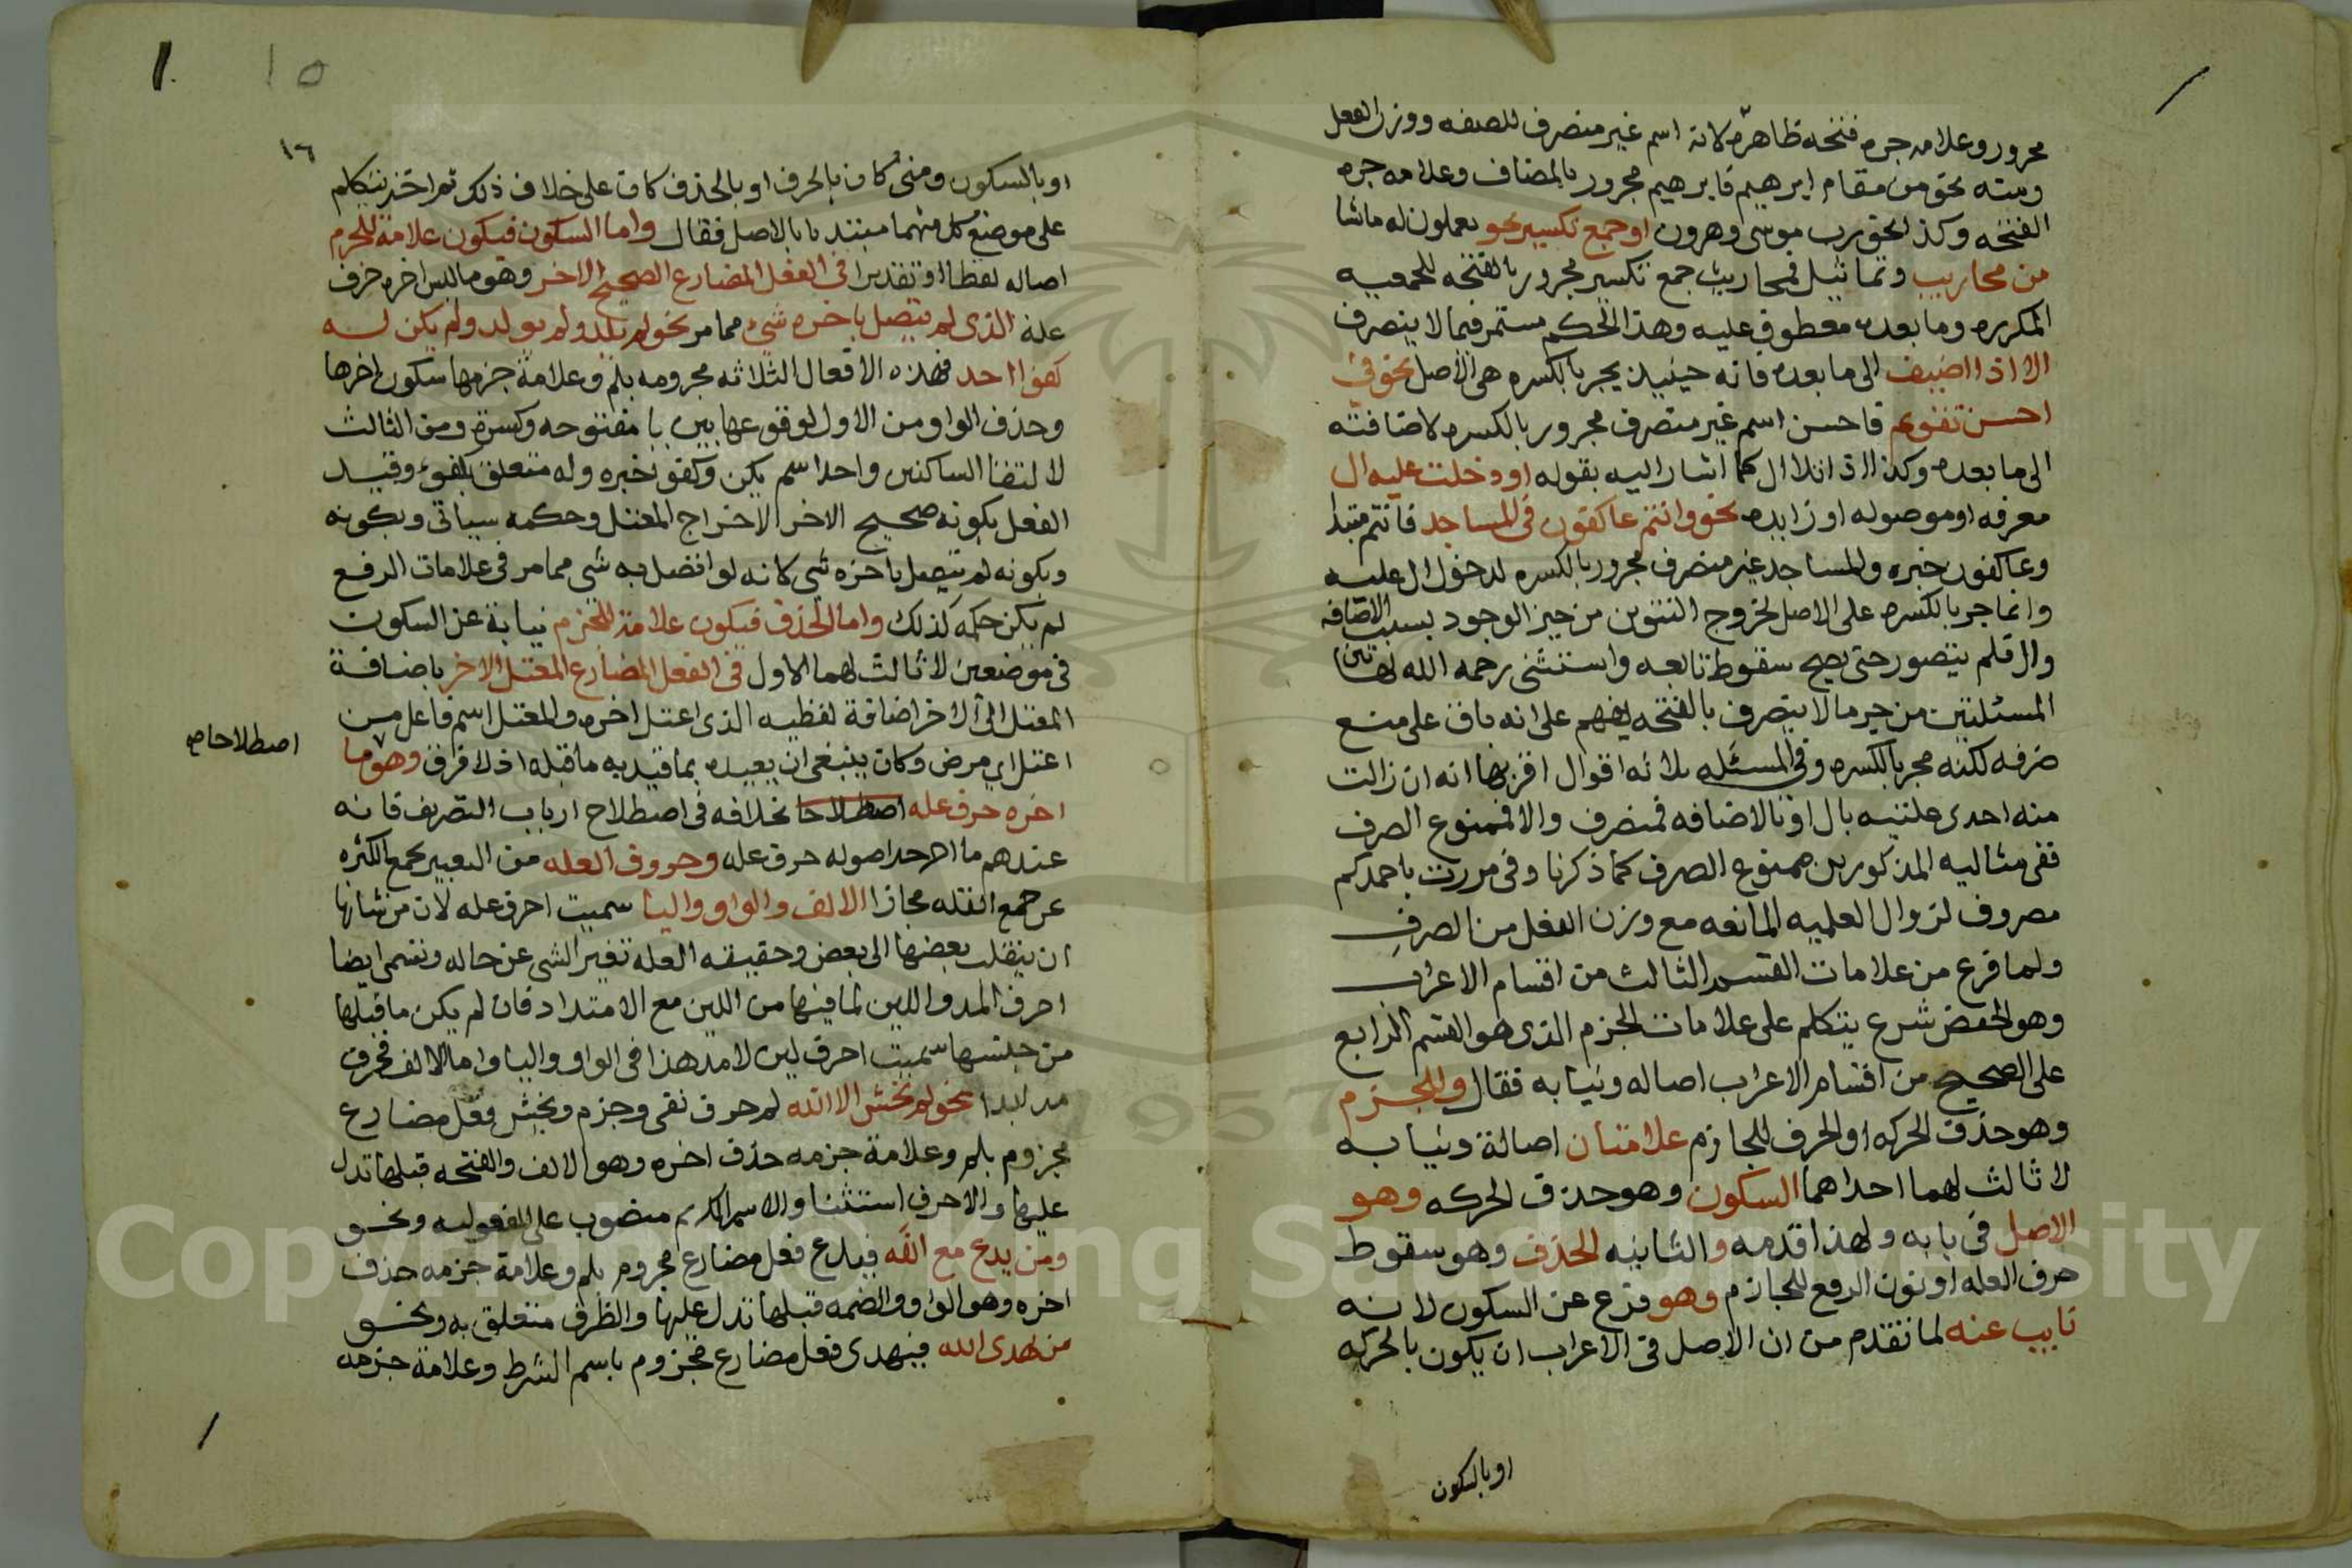 مجرور وعلامه جره فتحه ظاهره لانه اسم غير منصرف للصفه ووزن الفعل
ومنه نحو من مقام ابرهيم فابرهيم مجرور بالمضاف وعلامه جره
الفتحه وكذا نحو برب موسى وهرون او جمع تكسير نحو يعملون له ما شا
من محاريب وتماثيل فمحاريب جمع تكسير مجرور بالفتحه للجمعيه
المكرره وما بعده معطوف عليه وهذا الحكم مستمر فيما لا ينصرف
الا اذا اضيف الى ما بعده فانه حينيذ يجر بالكسره هى الاصل نحو فى
احسن تقويم فاحسن اسم غير منصرف مجرور بالكسره لاضافته
الى ما بعده وكذا اذا تلا ال كما اشار اليه بقوله او دخلت عليه ال
معرفه او موصوله او زايده نحو وانتم عاكفون فى المساجد فانتم مبتدا
وعاكفون خبره والمساجد غير منصرف مجرور بالكسره لدخول ال عليه
وانما جر بالكسره على الاصل لخروج التنوين من حيز الوجود بسبب الاضافه
وال فلم يتصور حتى يصح سقوطه تابعه واستثنى رحمه الله هاتين
المسئلتين من جر ما لا ينصرف بالفتحه يفهم على انه باق على منع
صرفه لكنه مجر بالكسره وفى المسئله ثلاثه اقوال اقربها انه ان زالت
منه احدى علتيه بال او بالاضافه فمنصرف والا فممنوع الصرف
ففى مثاليه المذكورين ممنوع الصرف كما ذكرنا وفى مررت باحمدكم
مصروف لزوال العلميه المانعه مع وزن الفعل من الصرف
ولما فرغ من علامات القسم الثالث من اقسام الاعراب
وهو الخفض شرع يتكلم على علامات الجزم الذى هو القسم الرابع
على الصحيح من اقسام الاعراب اصاله ونيابه فقال وللجزم
وهو حذف الحركه او الحرف للجازم علامتان اصالة ونيابه
لا ثالث لهما احداهما السكون وهو حذف الحركه وهو
الاصل فى بابه ولهذا قدمه والثانيه الحذف وهو سقوط
حرف العله او نون الرفع للجازم وهو فرع عن السكون لانه
نايب عنه لما تقدم من ان الاصل فى الاعراب ان يكون بالحركه
او بالسكون
١٥
١٦
او بالسكون ومتى كان بالحرف او بالحذف كان على خلاف ذلك ثم اخذ يتكلم
على موضع كل منهما مبتدءا بالاصل فقال واما السكون فيكون علامة للجزم
اصاله لفظا او تقديرا فى الفعل المضارع الصحيح الاخر وهو ما ليس اخره حرف
علة الذى لم يتصل باخره شىء مما مر نحو لم يلد ولم يولد ولم يكن له
كفوا احد فهذه الافعال الثلاثه مجزومه بلم وعلامة جزمها سكون اخرها
وحذف الواو من الاول لوقوعها بين يا مفتوحه وكسرة ومن الثالث
لالتقا الساكنين واحد اسم يكن وكفوا خبره وله متعلق بكفوء وقيد
الفعل بكونه صحيح الاخر لاخراج المعتل وحكمه سياتى وبكونه
وبكونه لم يتصل باخره شى لانه لو اتصل به شى مما مر فى علامات الرفع
لم يكن حكمه كذلك واما الحذف فيكون علامة للجزم نيابة عن السكون
فى موضعين لا ثالث لهما الاول فى الفعل المضارع المعتل الاخر باضافة
المعتل الى الاخر اضافة لفظيه الذى اعتل اخره والمعتل اسم فاعل من
اعتل اى مرض وكان ينبغى ان يقيده بما قيد به ما قبله اذ لا فرق وهو ما
اصطلاحا صح
اخره حرف عله اصطلاحا بخلافه فى اصطلاح ارباب التصريف فانه
عندهم ما احد اصوله حرف عله وحروف العله من التعبير بجمع الكثره
عن جمع القله مجازا الالف والواو واليا سميت احرف عله لان من شانها
ان ينقلب بعضها الى بعض وحقيقه العله تغير الشى عن حاله وتسمى ايضا
احرف المد واللين لما فيها من اللين مع الامتداد فان لم يكن ما قبلها
من جنسها سميت احرف لين لا مد هذا فى الواو واليا واما الالف فحرف
مد ابدا نحو لم يخش الا الله لم حرف نفى وجزم ويخش فعل مضارع
مجزوم بلم وعلامة جزمه حذف اخره وهو الالف والفتحه قبلها تدل
عليها والا حرف استثنا والاسم الكريم منصوب على المفعوليه ونحو
ومن يدع مع الله فيدع فعل مضارع مجزوم بلم وعلامة جزمه حذف
اخره وهو الواو والضمه قبلها تدل عليها والظرف متعلق به ونحو
من يهدى الله فيهدى فعل مضارع مجزوم باسم الشرط وعلامة جزمه
Copyright © King Saud University
1957